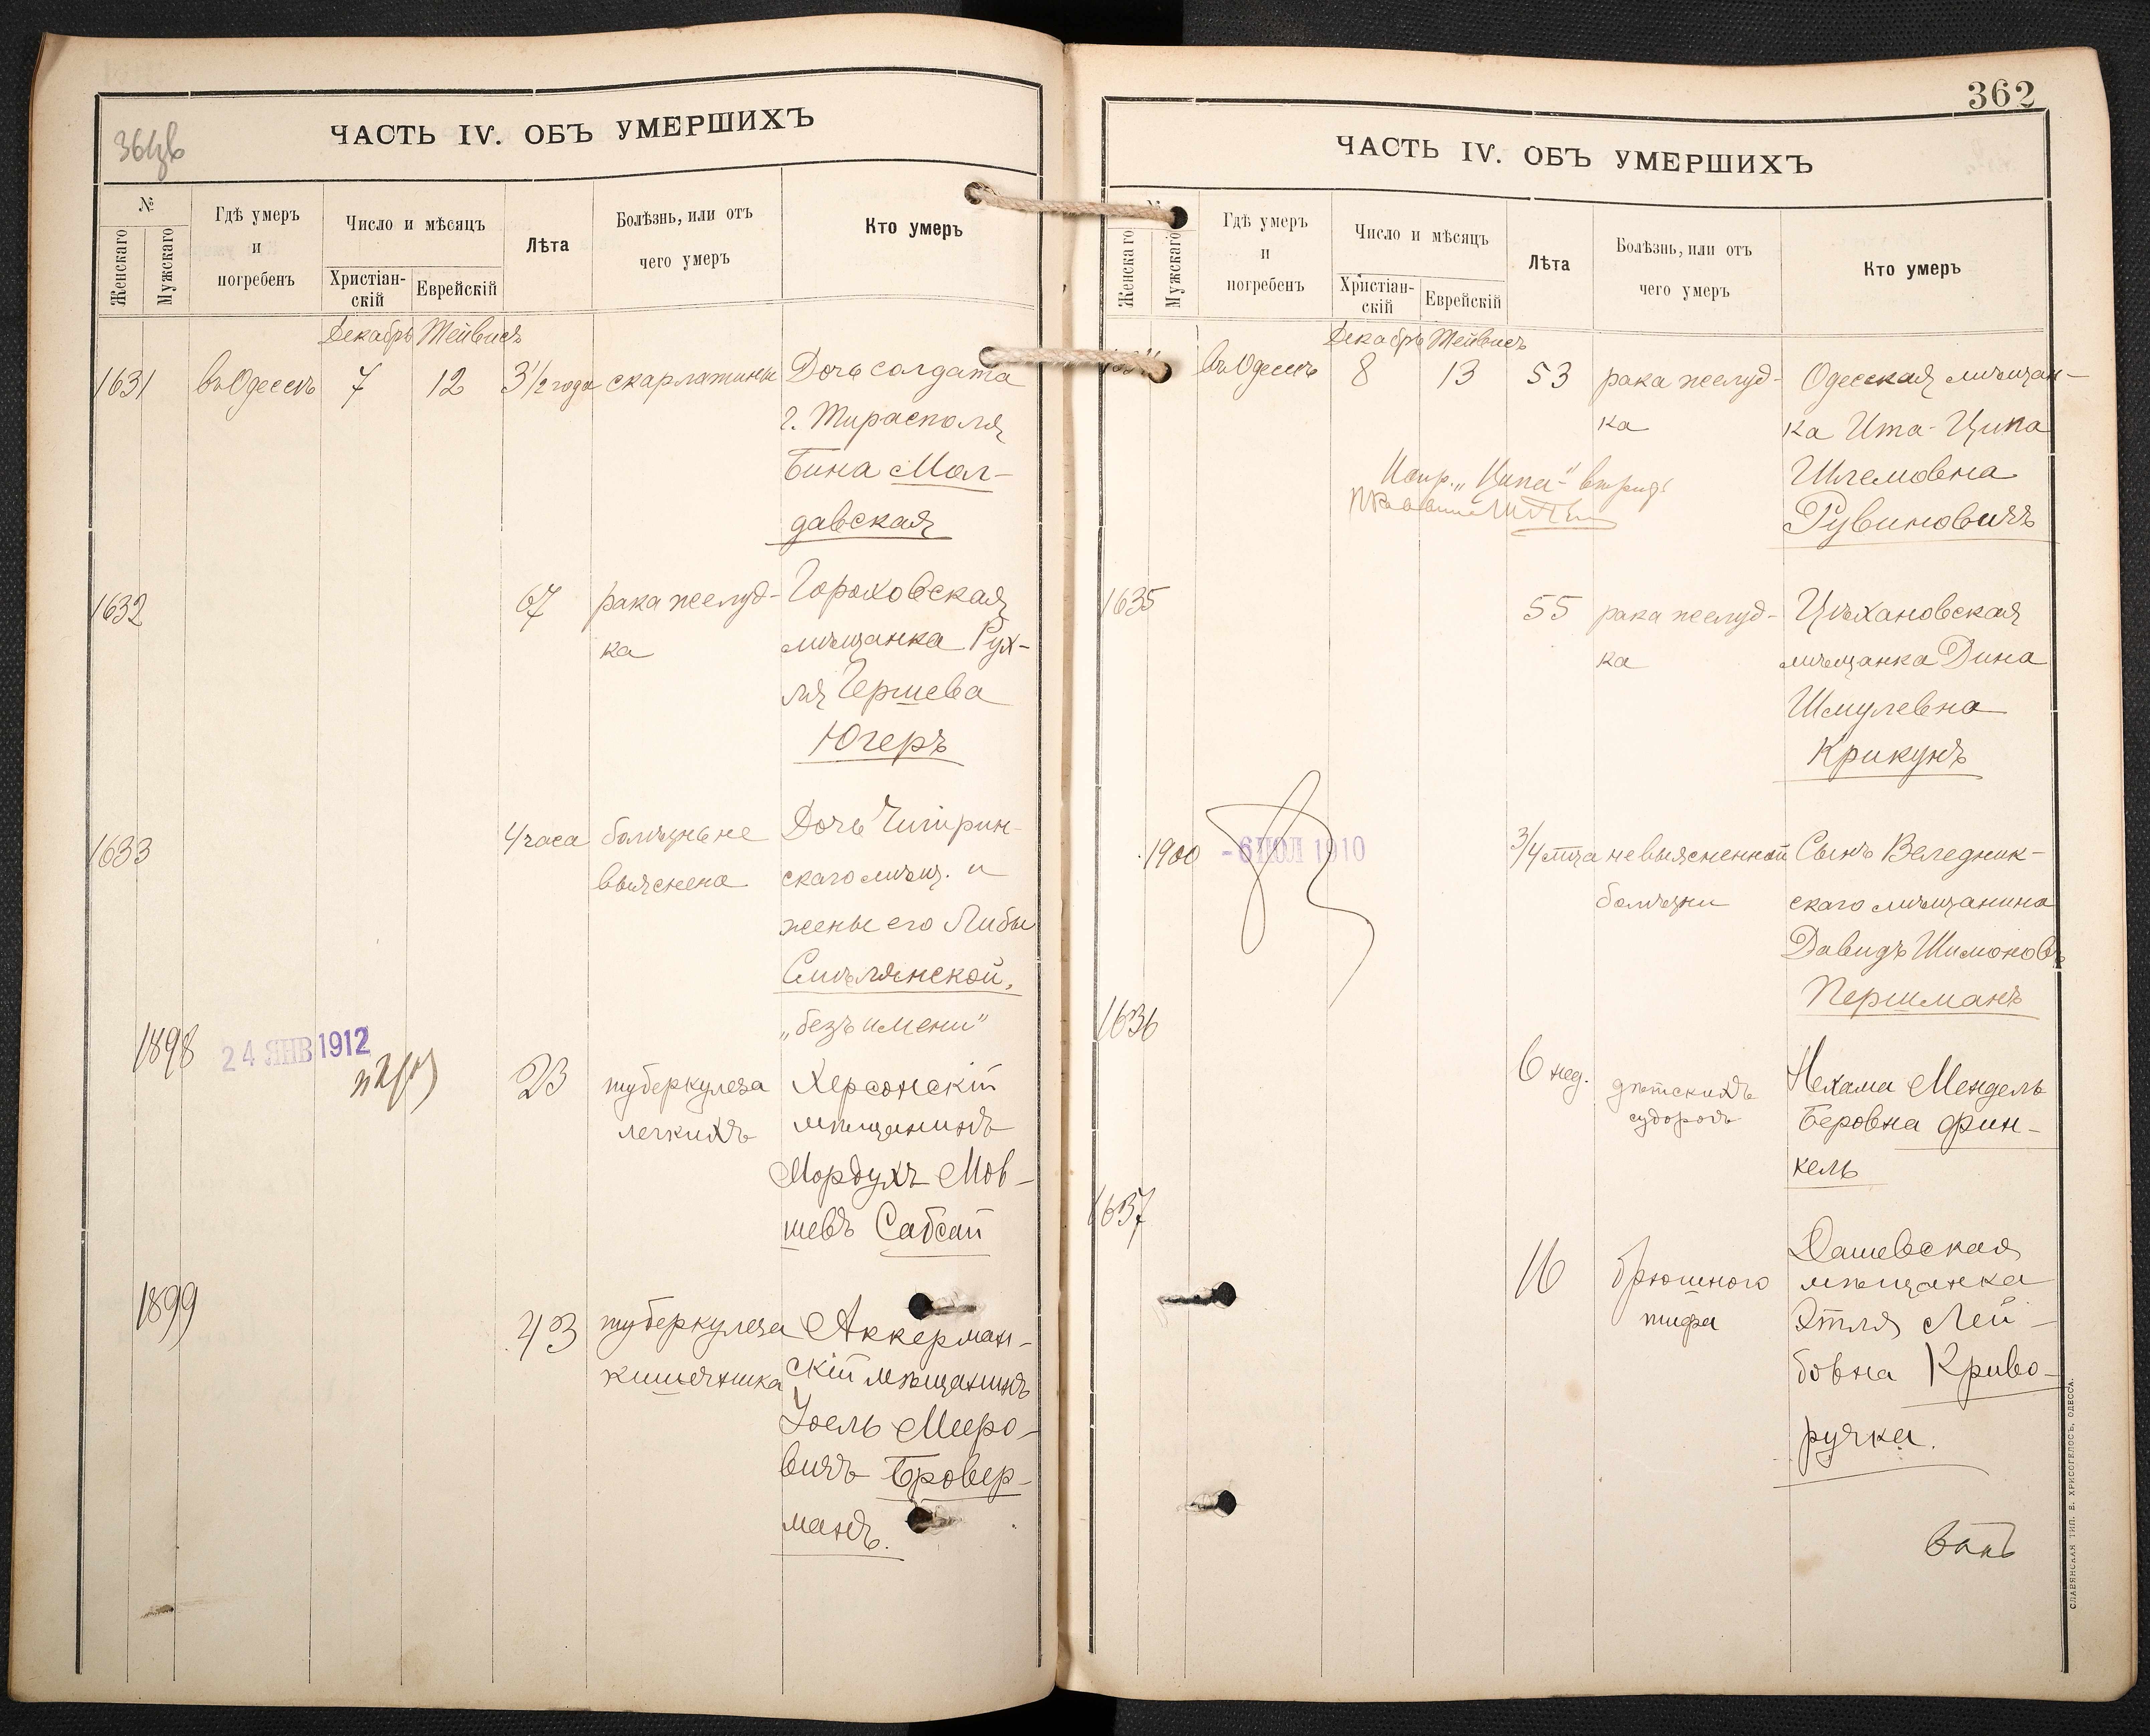 361об
ЧАСТЬ IV. ОБЪ УМЕРШИХЪ
№
Женскаго
Мужскаго
Гдѣ умеръ
и
погребенъ
Число и мѣсяцъ
Христіан-
скій
Еврейскій
Лѣта
Болѣзнь, или отъ
чего умеръ
Кто умеръ
Декабрь Тейвисъ
1631 въ Одессѣ 7 12 3 1/2 года скарлатины Дочь солдата
г. Тирасполя
Бина Мол-
давская
1632 67 рака желуд- Гороховская
ка мѣщанка Рух-
ля Гершева
Югеръ
1633 4 часа болѣзнь не Дочь Чигирин-
выяснена скаго мѣщ. и
жены его Либы
Смѣлянской,
„безъ имени"
1898 24 ЯНВ 1912 23 туберкулеза Херсонскій
легкихъ мѣщанинъ
Мордухъ Мов-
шевъ Сабсай
1899 43 туберкулеза Аккерман-
кишечника скій мѣщанинъ
Іоель Мееро-
вичъ Бровер-
манъ.
362
ЧАСТЬ IV. ОБЪ УМЕРШИХЪ
Женскаго
Мужскаго
Гдѣ умеръ
и
погребенъ
Число и мѣсяцъ
Христіан-
скій
Еврейскій
Лѣта
Болѣзнь, или отъ
чего умеръ
Кто умеръ
Декабрь Тейвисъ
въ Одессѣ 8 13 53 рака желуд- Одесская мѣщан-
ка ка Ита-Ципа
Шлемовна
Рувиновичъ
Испр. „Ципа"
1635 55 рака желуд- Цѣхановская
ка мѣщанка Дина
Шмулевна
Крикунъ
1900 - 6 ІЮЛ 1910 3/4 м-ца невыясненной Сынъ Веледник-
болѣзни скаго мѣщанина
Давидъ Шимоновъ
Першманъ
1636 6 нед. дѣтскихъ Нехама Мендель
судорогъ Беровна Фин-
кель
1637 16 брюшного Дашевская
тифа мѣщанка
Этля Лей-
бовна Криво-
ручка.
СЛАВЯНСКАЯ ТИП. Е. ХРИСОГЕЛОСЪ, ОДЕССА.